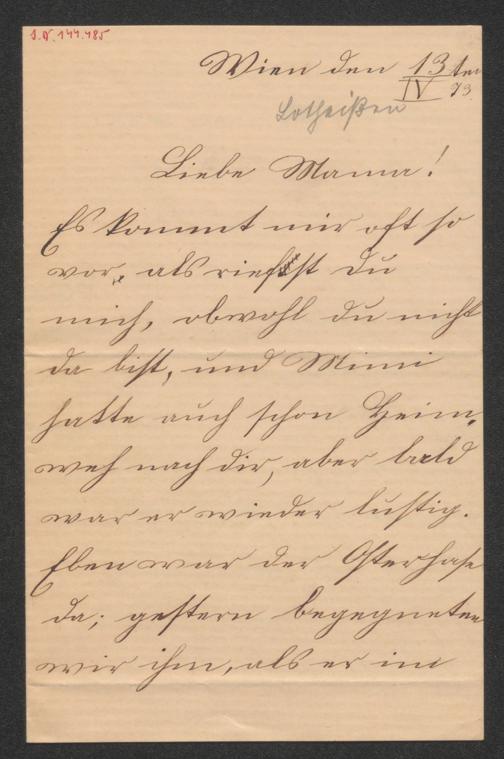 I.N. 144.485
Wien den 13ten
IV 73
Lotheißen
Liebe Mama!
Es kommt mir oft so
vor, als riefst du
mich, obwohl du nicht
da bist, und Mimi
hatte auch schon Heim„
weh nach dir, aber bald
war er wieder lustig.
Eben war der Osterhase
da; gestern begegneten
wir ihm, als er im